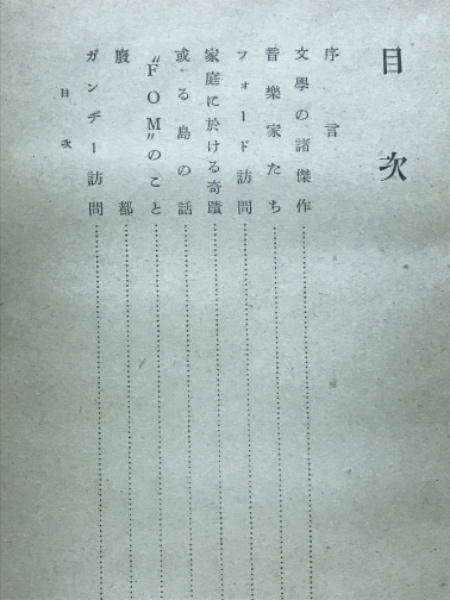 目次
序言
文學の諸傑作
音樂家たち
フォード訪問
家庭に於ける奇蹟
或る島の話
"FOM"のこと
廢都
ガンヂー訪問
目次